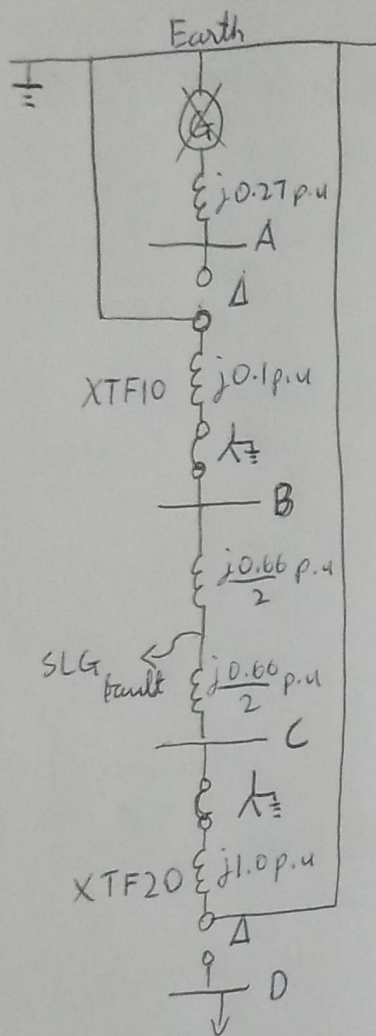 Earth
G
j0.27 p.u
A
Δ
XTF10
j0.1 p.u
B
j0.66 p.u
2
SLG
fault
j0.66 p.u
2
C
XTF20
j1.0 p.u
Δ
D